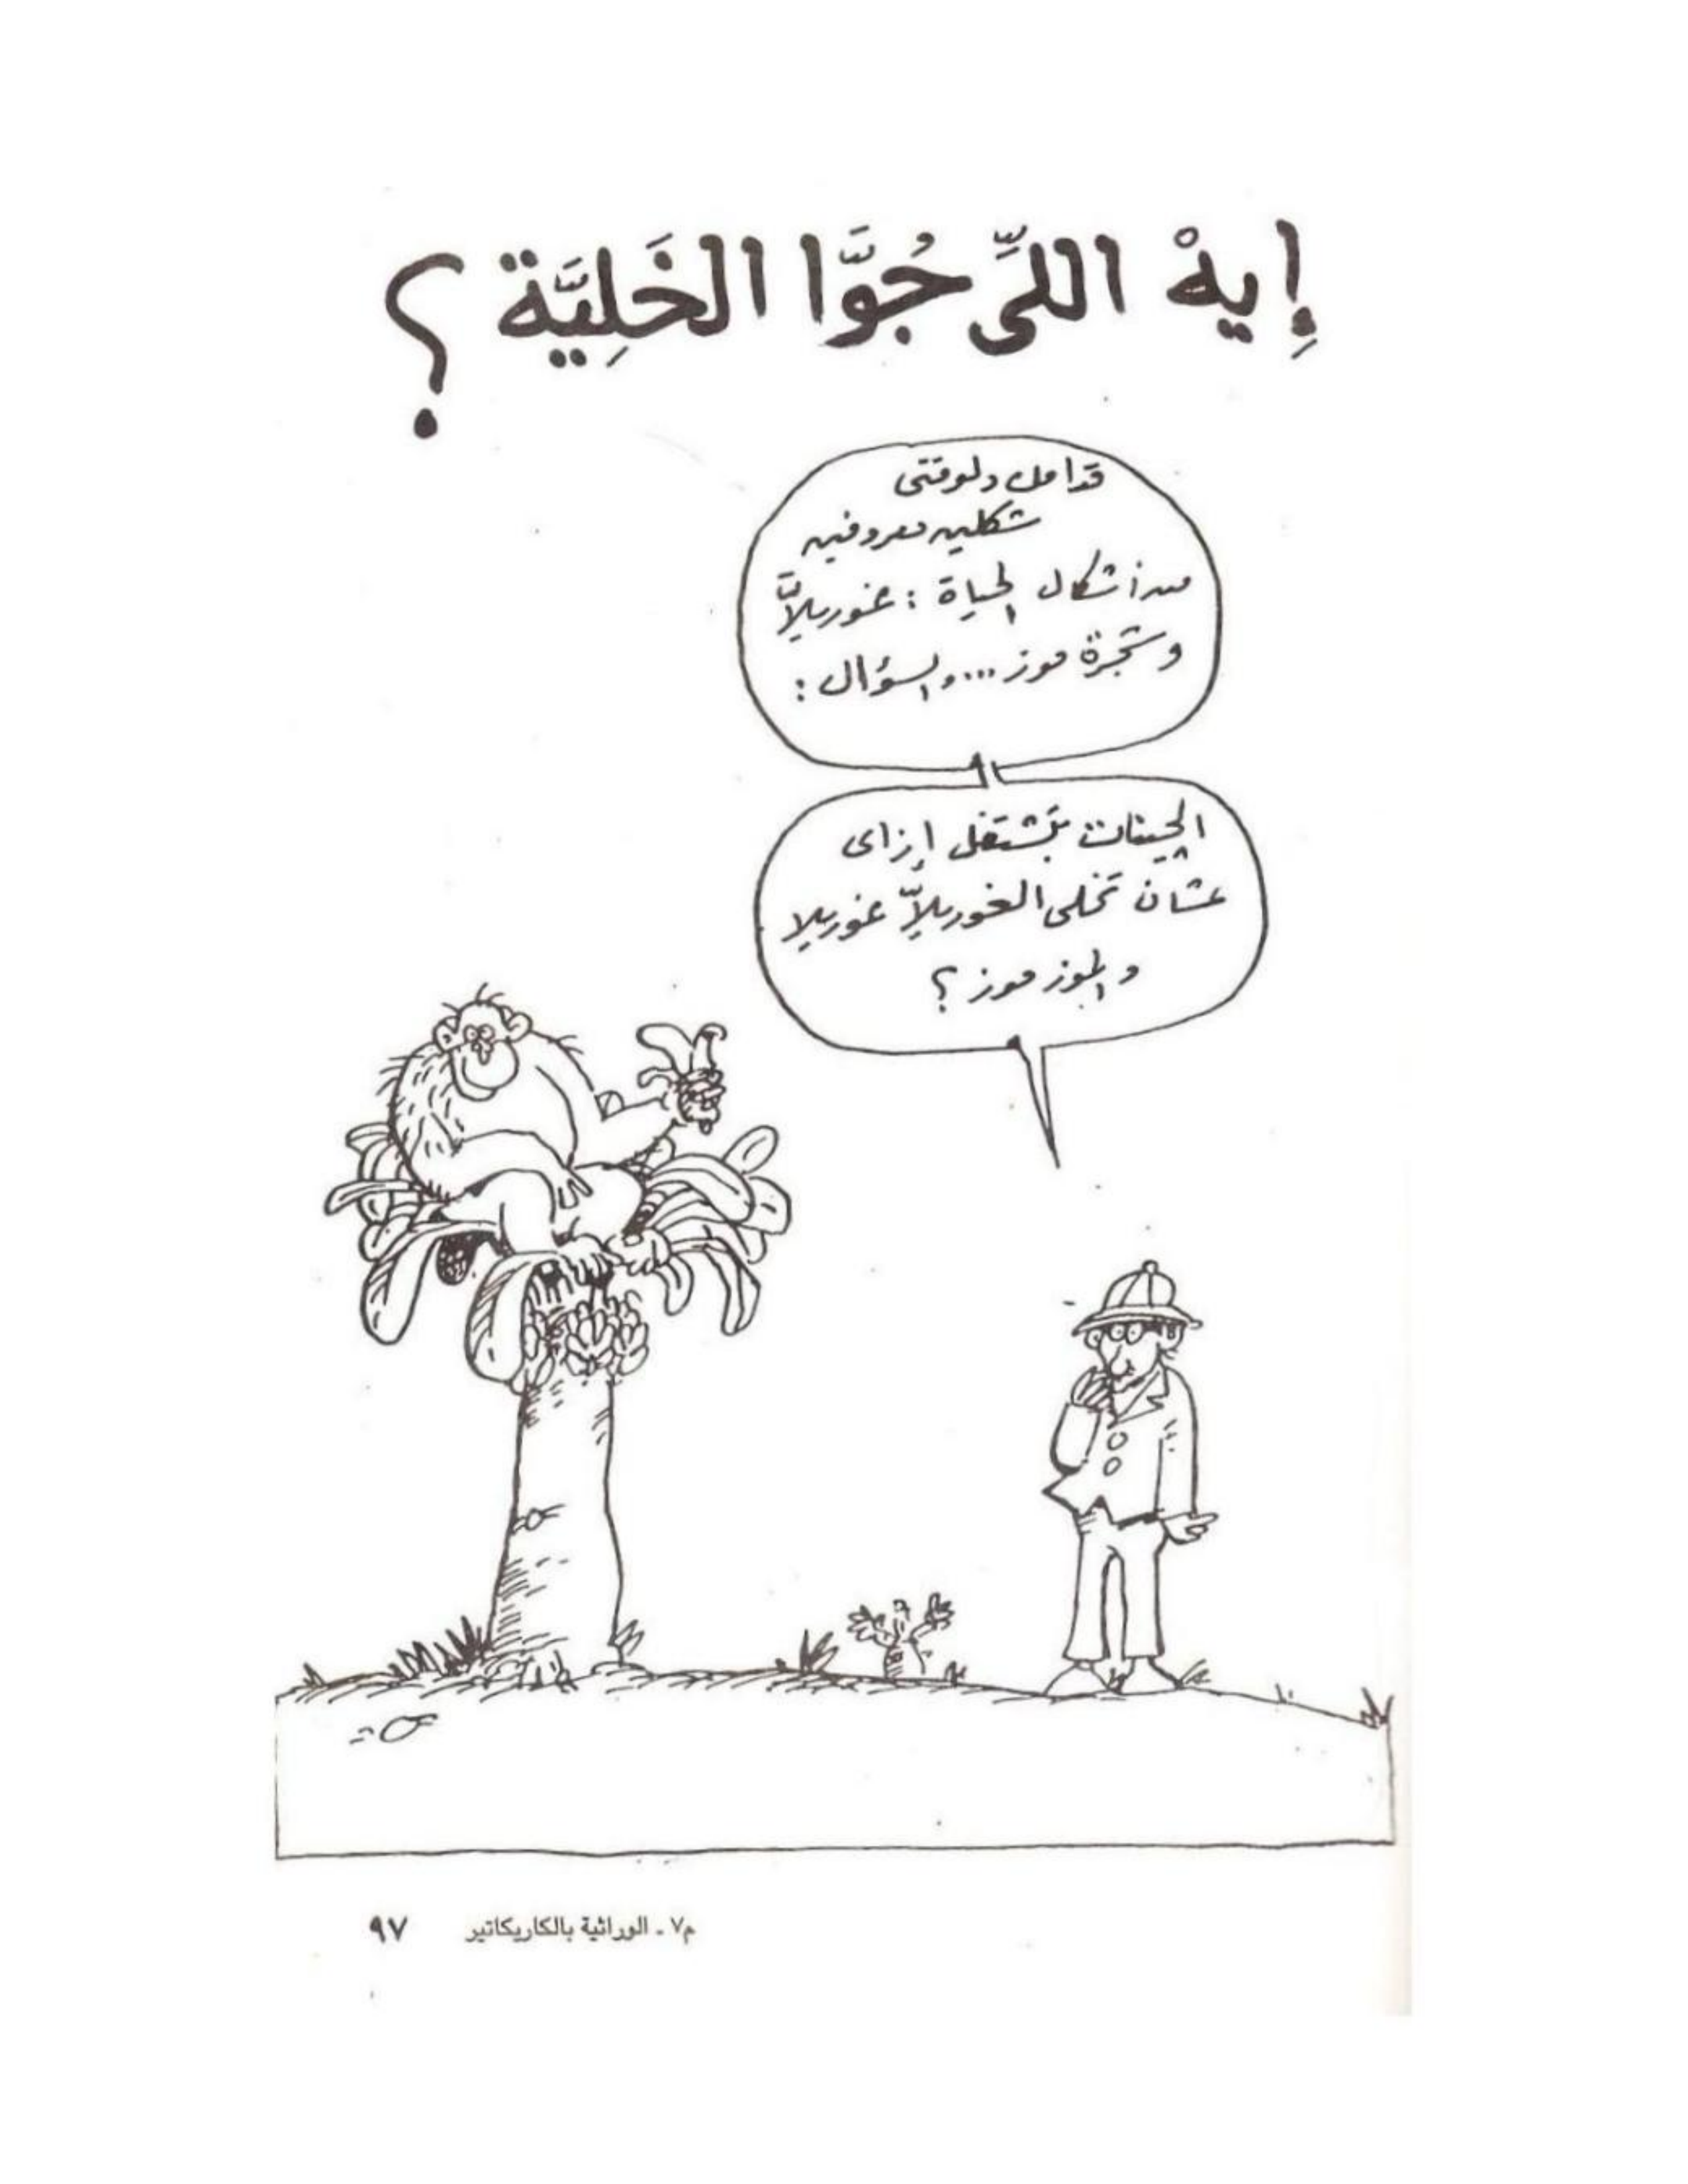 إِيهْ اللِّي جُوَّا الخَلِيَّة ؟
قدامك دلوقتى
شكلين معروفين
من أشكال الحياة : غوريلاَّ
وشجرة موز ... والسؤال :
الچينات بتشتغل إزاى
عشان تخلى الغوريلاَّ غوريلا
والموز موز ؟
م٧ ـ الوراثية بالكاريكاتير ٩٧